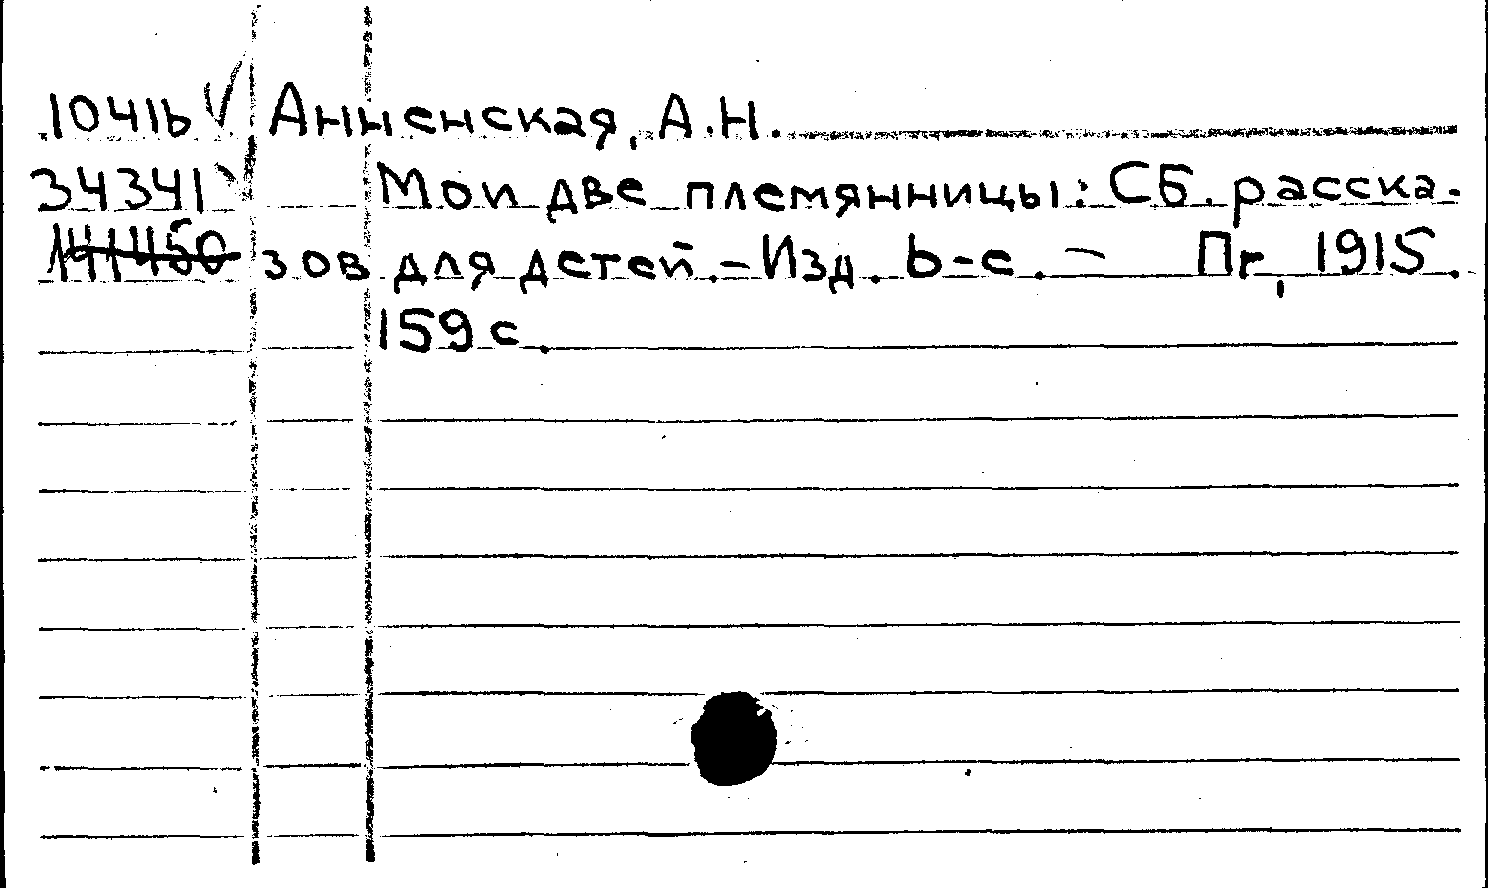 10416 Анненская, А.Н.
34341 Мои две племянницы: Сб. расска-
141450 зов для детей. - Изд. 6-е. - Пг, 1915.
159 с.